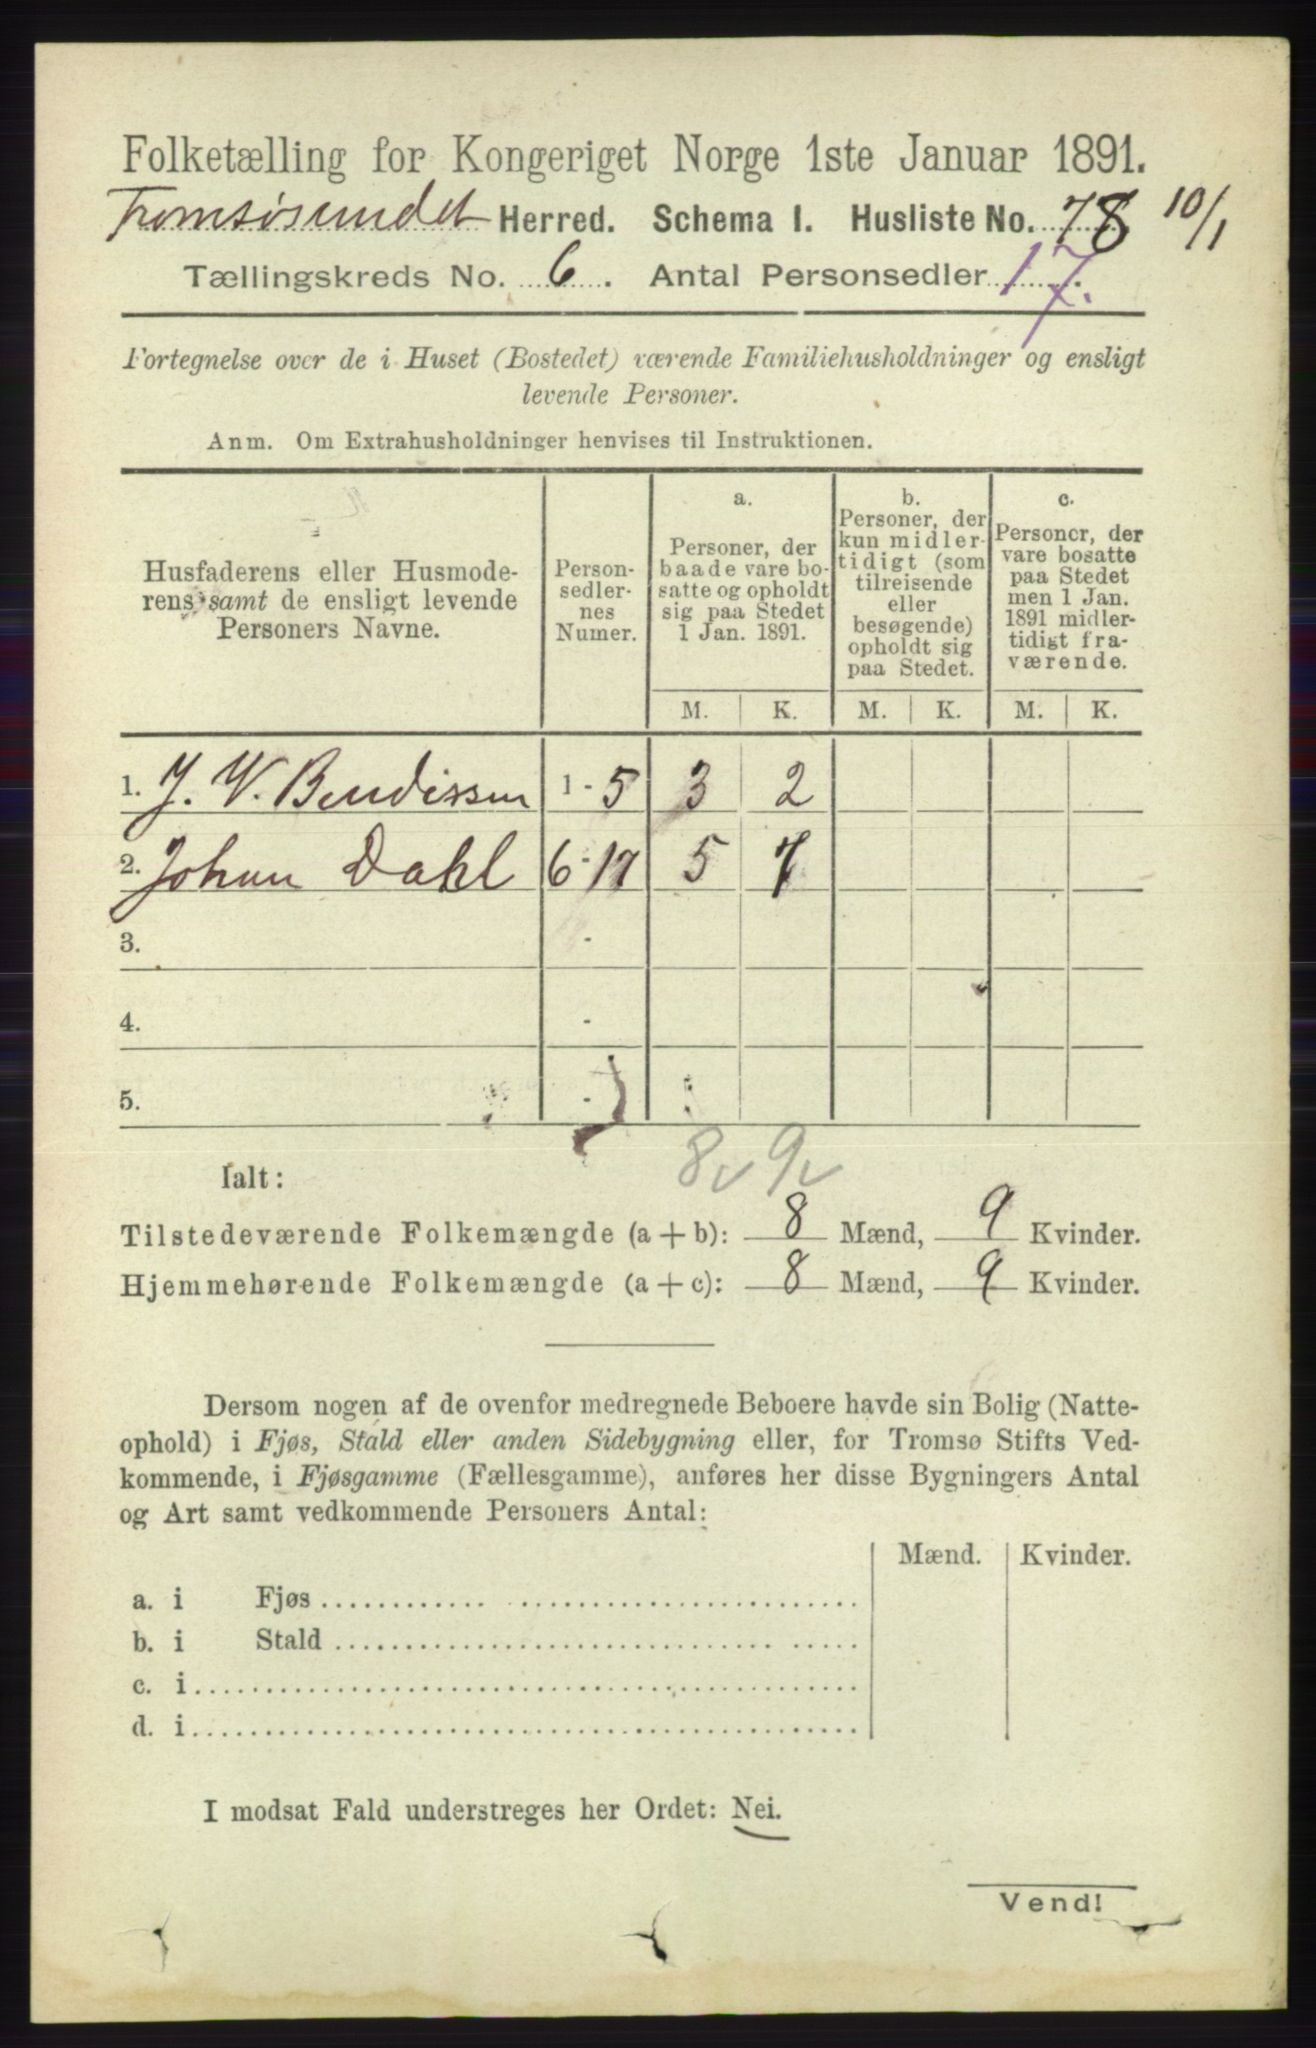 Folketælling for Kongeriget Norge 1ste Januar 1891.
Tromsøsundet Herred. Schema I. Husliste No. 78 10/1
Tællingskreds No. 6. Antal Personsedler 17.
Fortegnelse over de i Huset (Bostedet) værende Familiehusholdninger og ensligt
levende Personer.
Anm. Om Extrahusholdninger henvises til Instruktionen.
Husfaderens eller Husmode-
rens samt de ensligt levende
Personers Navne.
Person-
sedler-
nes
Numer.
a.
Personer, der
baade vare bo-
satte og opholdt
sig paa Stedet
1 Jan. 1891.
b.
Personer, der
kun midler-
tidigt (som
tilreisende
eller
besøgende)
opholdt sig
paa Stedet.
c.
Personer, der
vare bosatte
paa Stedet
men 1 Jan.
1891 midler-
tidigt fra-
værende.
M. K. M. K. M. K.
1. J. V. Bendissen 1 - 5 3 2
2. Johan Dahl 6 - 17 5 7
3. -
4. -
5. -
8 9
Ialt:
Tilstedeværende Folkemængde (a + b): 8 Mænd, 9 Kvinder.
Hjemmehørende Folkemængde (a + c): 8 Mænd, 9 Kvinder.
Dersom nogen af de ovenfor medregnede Beboere havde sin Bolig (Natte-
ophold) i Fjøs, Stald eller anden Sidebygning eller, for Tromsø Stifts Ved-
kommende, i Fjøsgamme (Fællesgamme), anføres her disse Bygningers Antal
og Art samt vedkommende Personers Antal:
Mænd. Kvinder.
a. i Fjøs
b. i Stald
c. i
d. i
I modsat Fald understreges her Ordet: Nei.
Vend!